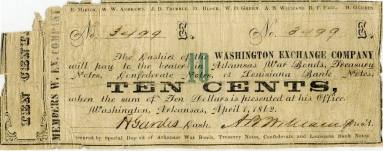 No. 3499 E. No. 3499 E.
The Cashier of the WASHINGTON EXCHANGE COMPANY
will pay to the bearer in Arkansas War Bonds, Treasury
Notes, Confederate Notes, or Louisiana Bank Notes,
TEN CENTS,
when the sum of Ten Dollars is presented at his Office.
Washington, Arkansas, April 1, 1862.
Cash. Pres't.
Secured by Special Deposit of Arkansas War Bonds, Treasury Notes, Confederate and Louisiana Bank Notes
TEN CENT
MEMBERS W. EX. COMPANY